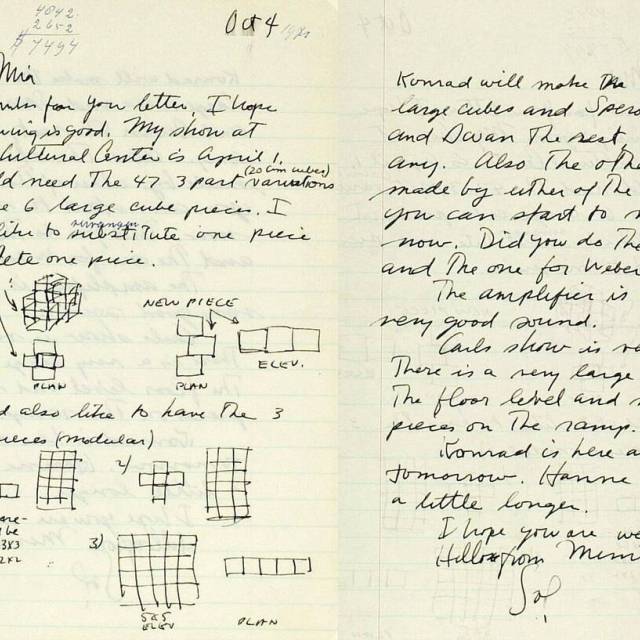 4842.
2652
7494
Oct 4
for you letter. I hope
is good. My show at
Cultural Center is April 1.
(20 cm cubes)
need the 47 3 part variations
6 large cube pieces. I
like to substitute one piece
one piece.
NEW PIECE
PLAN
PLAN
ELEV.
also like to have the 3
pieces (modular)
2)
3)
3x3
2x2
5x5
ELEV
PLAN
Konrad will make the
large cubes and
and the rest,
any. Also the
made by either of the
you can start to
now. Did you do the
and the one for Weber
The amplifier is
very good sound.
Carls show is
There is a very large
The floor level and
pieces on the ramp.
Konrad is here
tomorrow. Hanne
a little longer.
I hope you are
Hello from
Sol